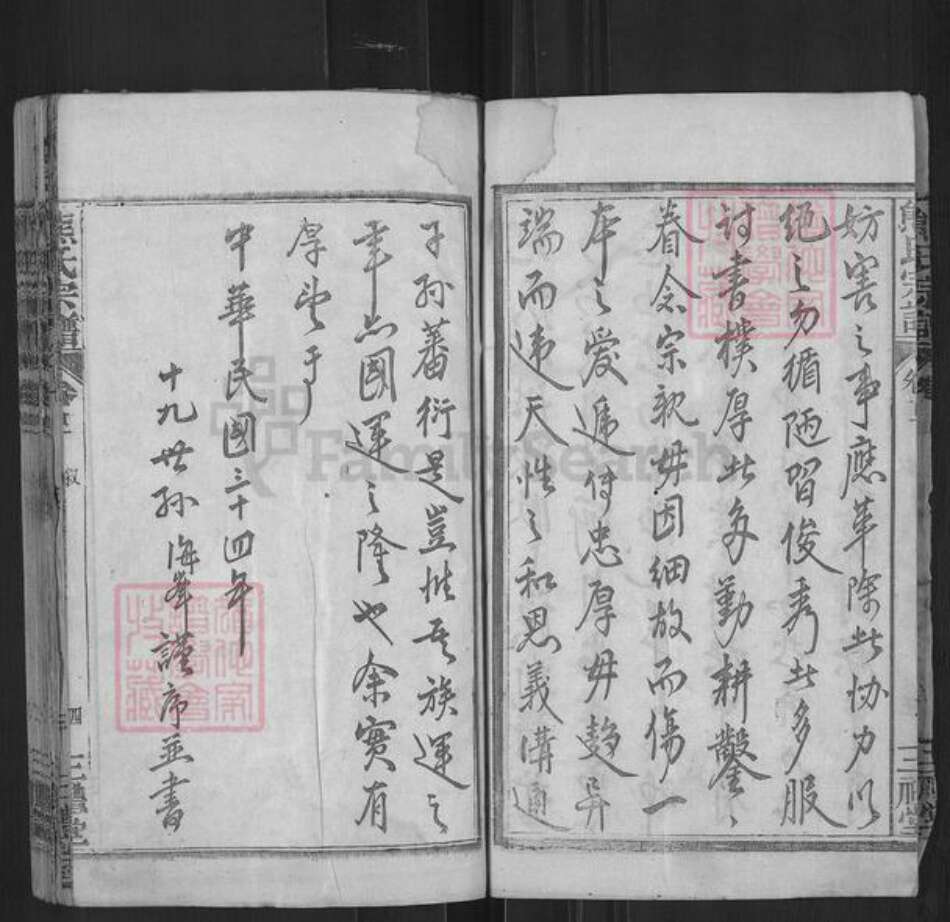 妨害之事應革除此協力以
絕之勿循陋習俊秀此多服
詩書樸厚此多勤耕鑿
眷念宗親毋因細故而傷一
本之愛遞付忠厚毋趨異
端而违天性之和恩義溝通
子孫蕃衍是豈惟吾族運之
幸亦國運之隆也余實有
厚望于
中華民國三十四年
十九世孫海峯謹序並書
熊氏宗譜
卷首
敘
四
三禮堂
FamilySearch